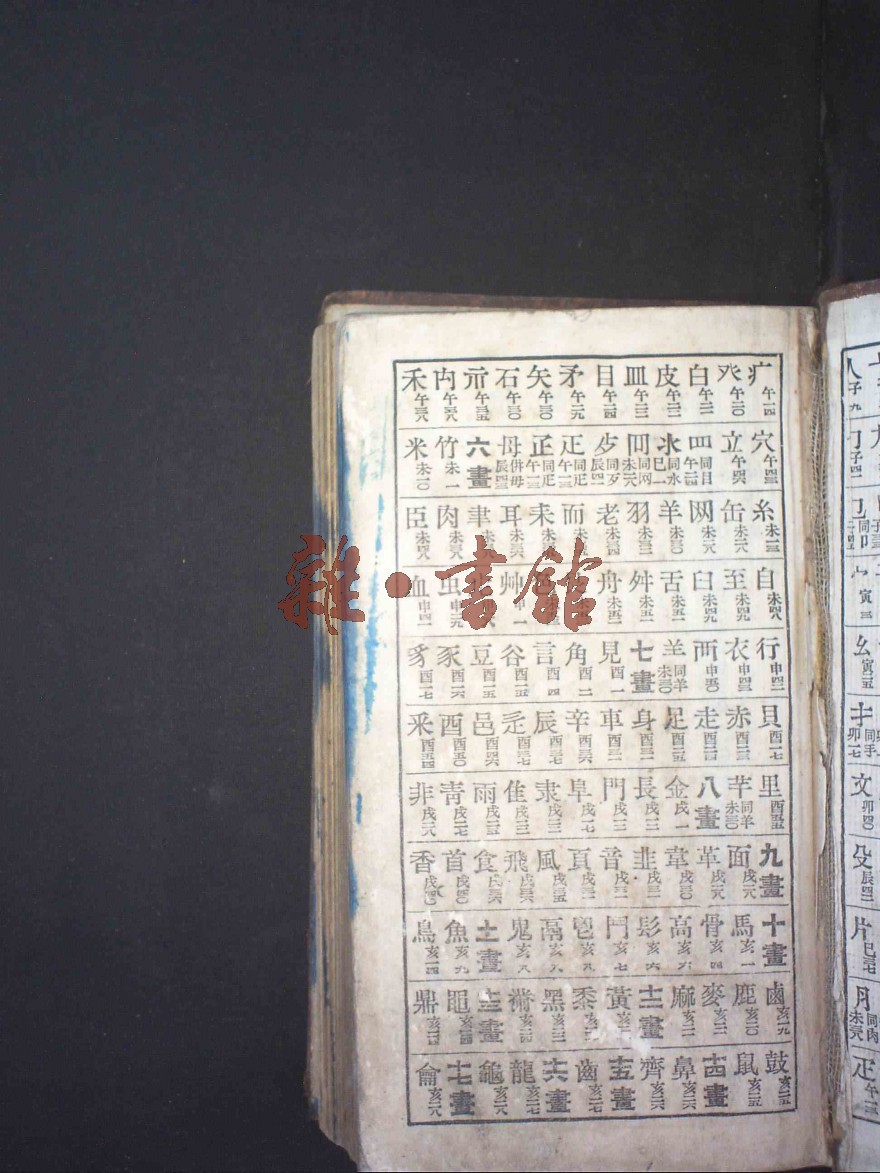 疒午一四 癶午一〇 白午二一 皮午二二 皿午二三 目午二四 矛午二九 矢午三〇 石午三〇 示午三五 禸午三八 禾午三八
穴午四三 立午四六 罒同目午二四 氺同水巳一 冈同网未二八 歺同歹辰四一 疋同疋午一三 正同疋午一三 母併毋辰四三 六畫 竹未一 米未一〇
糸未一三 缶未二八 网未二八 羊未三〇 羽未三二 老未三四 而未三五 耒未三五 耳未三六 聿未三八 肉未三八 臣未四八
自未四八 至未四九 臼未四九 舌未五一 舛未五一 舟未五二 艸申一 虫申二九 血申四一
行申四二 衣申四三 襾申五〇 𦍌同羊未三〇 七畫 見酉一 角酉二 言酉四 谷酉一五 豆酉一五 豕酉一六 豸酉一七
貝酉一七 赤酉二三 走酉二四 足酉二七 身酉三二 車酉三二 辛酉三七 辰酉三七 辵酉三七 邑酉四六 酉酉五〇 釆酉五四
里酉五五 芊同羊未三〇 八畫 金戌一 長戌一二 門戌一二 阜戌一七 隶戌二三 隹戌二三 雨戌二五 靑戌二七 非戌二八
九畫 面戌二八 革戌二八 韋戌三〇 韭戌三一 音戌三一 頁戌三一 風戌三五 飛戌三六 食戌三六 首戌四〇 香戌四〇
十畫 馬亥一 骨亥四 高亥六 髟亥六 鬥亥七 鬯亥八 鬲亥八 鬼亥八 十一畫 魚亥九 鳥亥一四
鹵亥一九 鹿亥二〇 麥亥二一 麻亥二二 十二畫 黃亥二二 黍亥二二 黑亥二二 黹亥二四 十三畫 黽亥二四 鼎亥二四
鼓亥二五 鼠亥二五 十四畫 鼻亥二六 齊亥二六 十五畫 齒亥二七 十六畫 龍亥二八 龜亥二八 十七畫 龠亥二八
雜·書館